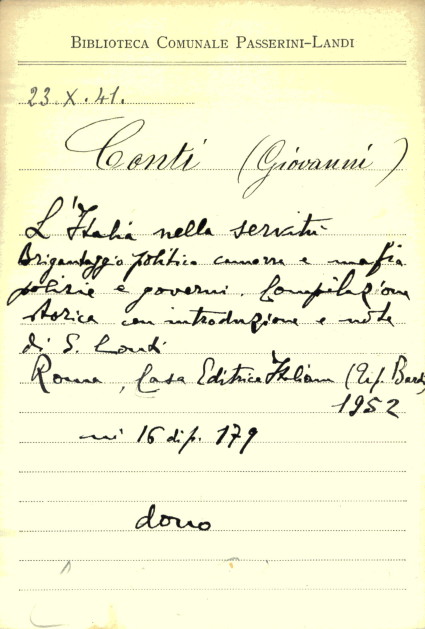 BIBLIOTECA COMUNALE PASSERINI-LANDI
23.X.41.
Conti (Giovanni)
L'Italia nella servitù
Brigantaggio politico camorra e mafia
polizie e governi. Compilazione
storica con introduzione e note
di G. Conti
Roma, Casa Editrice Italiana (Tip. Bardi)
1952
in 16 di p. 179
dono